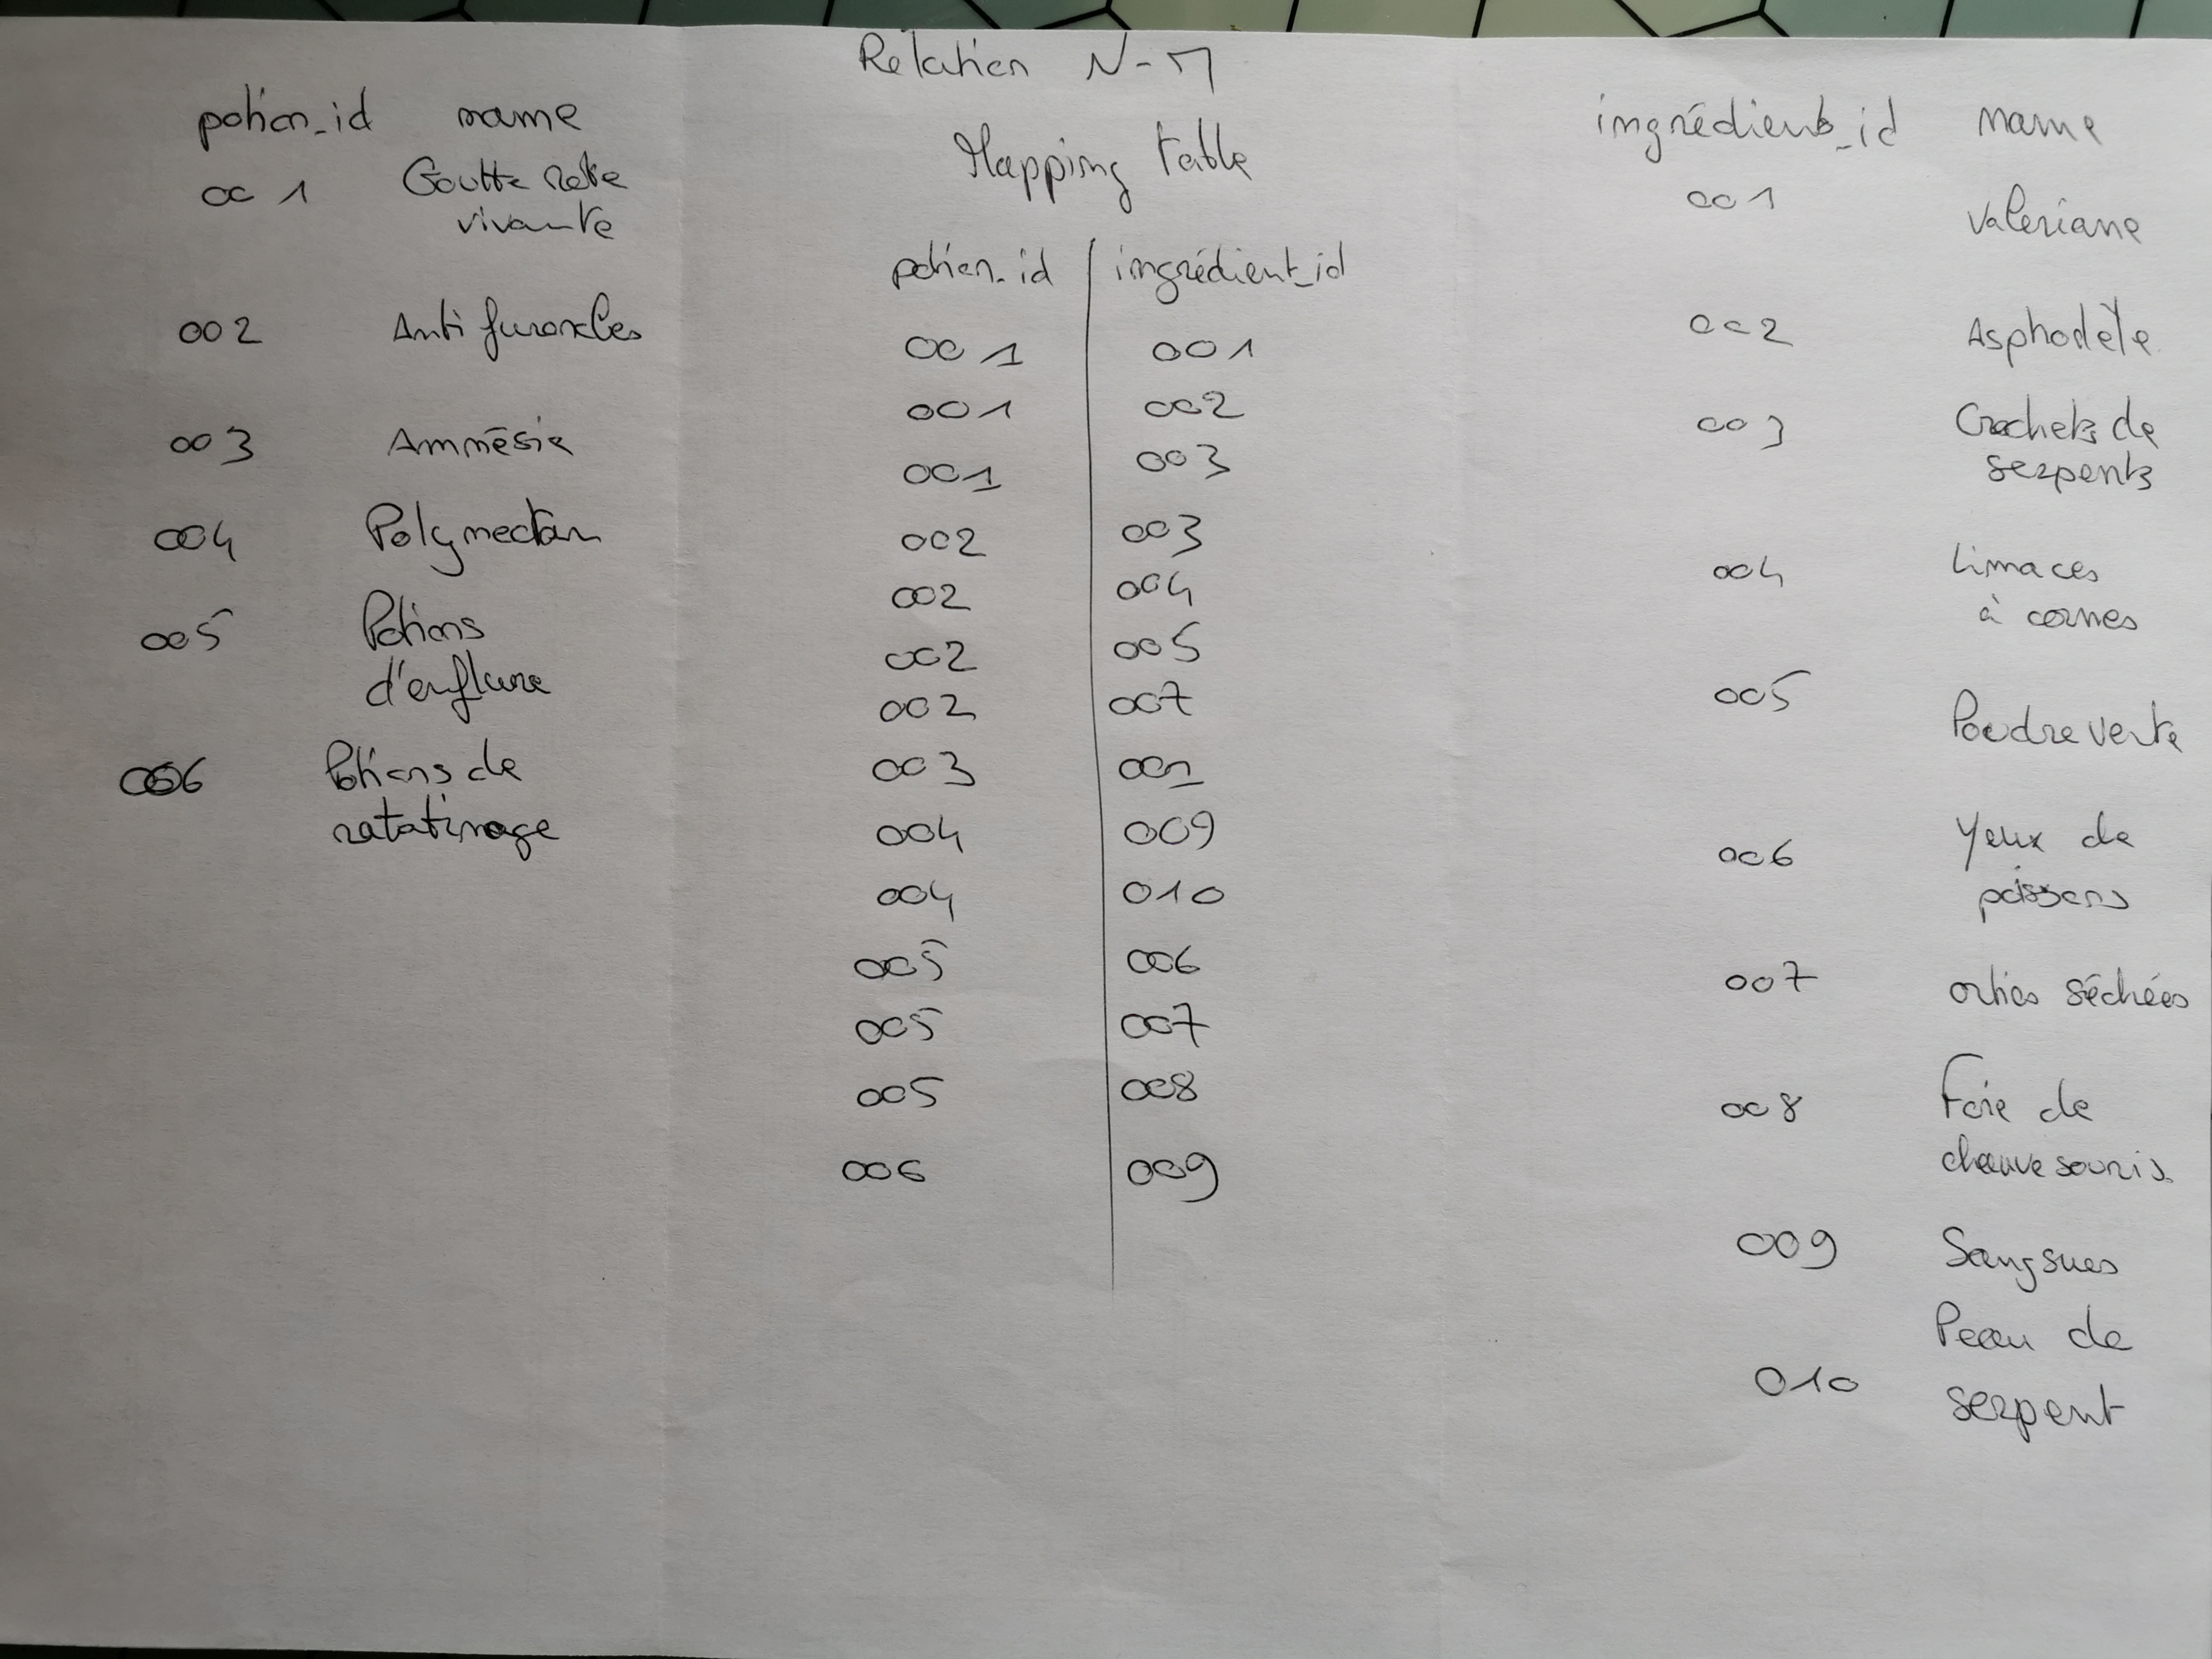 Relation N-M
potion_id name
001 Goutte
vivante
002 Anti furoncles
003 Amnésie
004 Polynectar
005 Potions
d'enflure
006 Potions de
ratatinage
Mapping table
potion_id ingrédient_id
001 001
001 002
001 003
002 003
002 004
002 005
002 007
003
004 009
004 010
005 006
005 007
005 008
006 009
ingrédients_id name
001 Valeriane
002 Asphodèle
003 Crochets de
serpents
004 Limaces
à cornes
005 Poudre verte
006 Yeux de
poissons
007 orties séchées
008 Foie de
chauve souris
009 Sangsues
010 Peau de
serpent